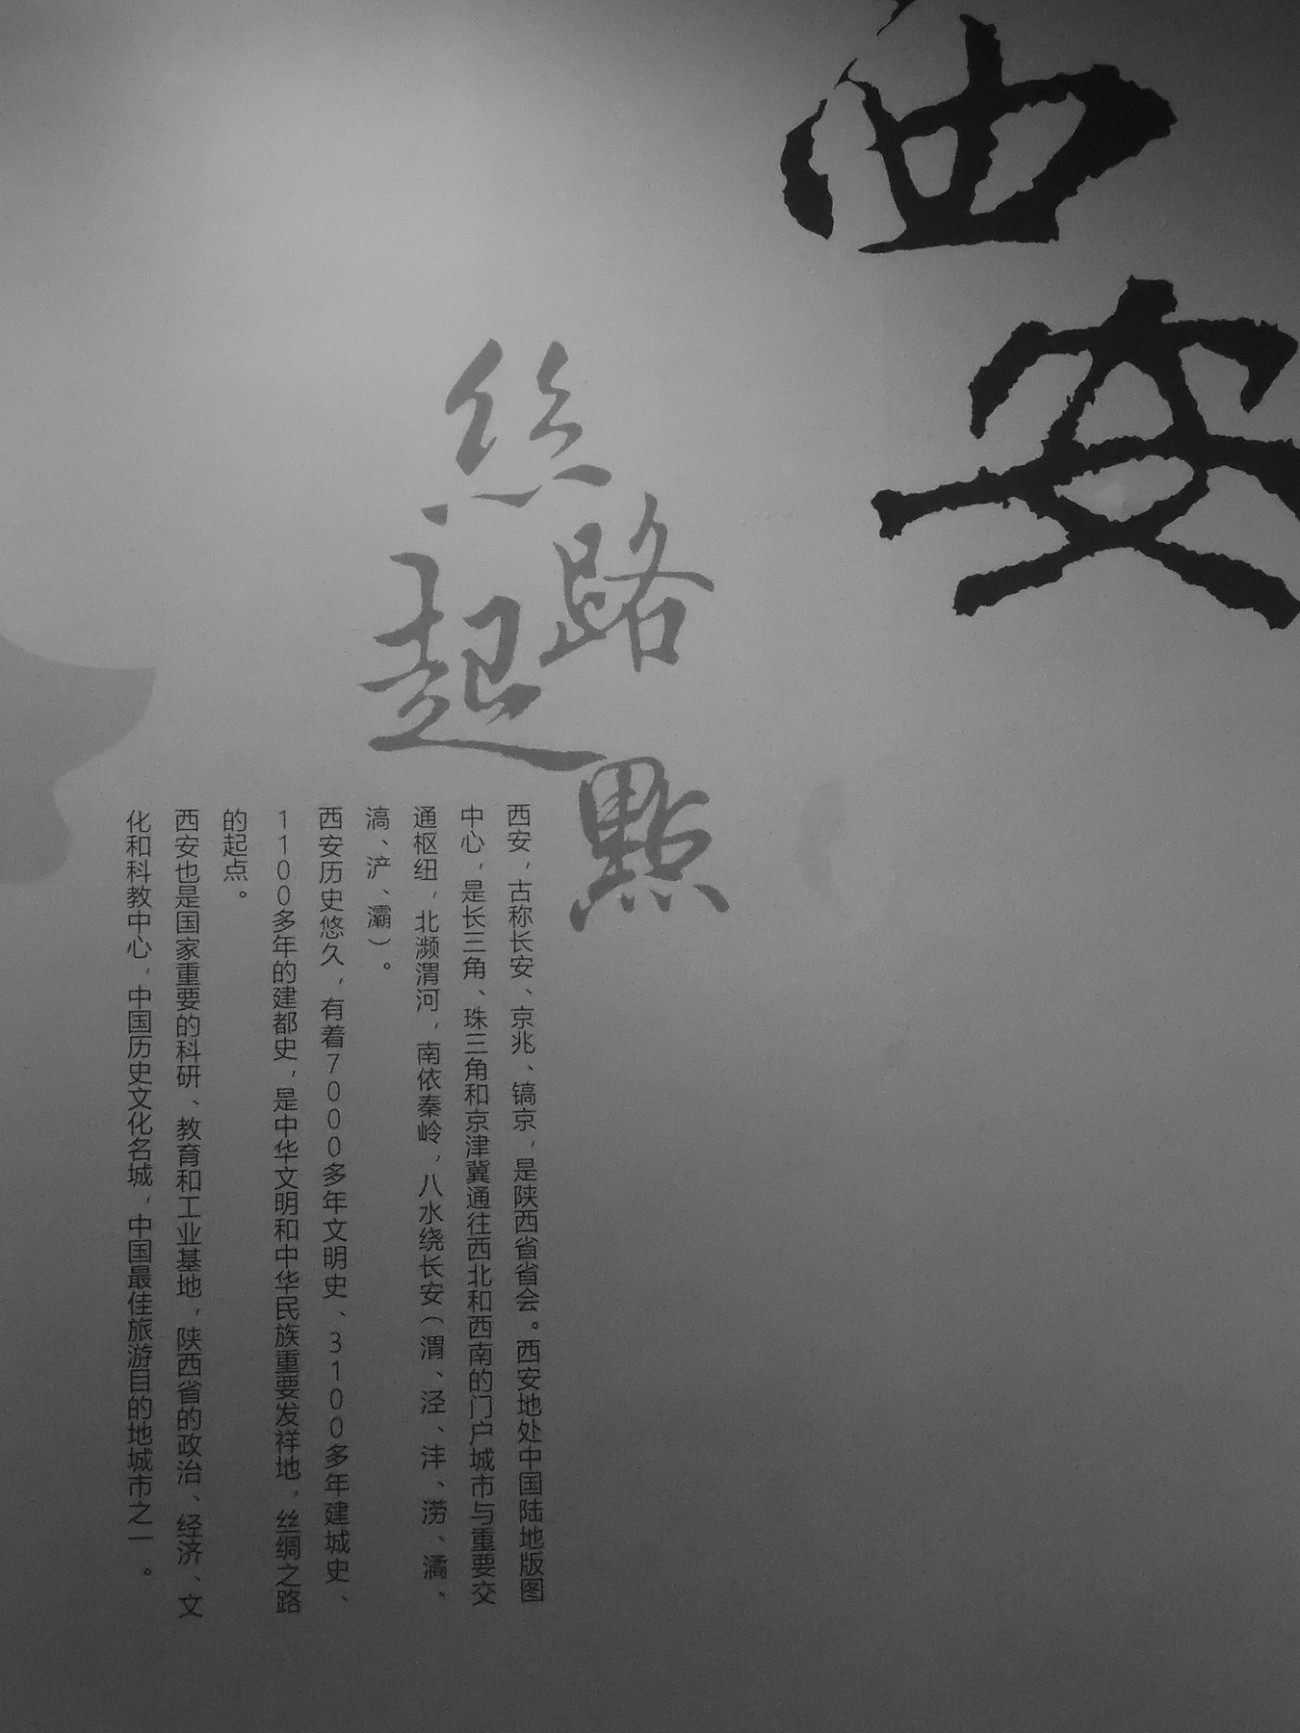 西安
絲路起點
西安，古称长安、京兆、镐京，是陕西省省会。西安地处中国陆地版图
中心，是长三角、珠三角和京津冀通往西北和西南的门户城市与重要交
通枢纽，北濒渭河，南依秦岭，八水绕长安（渭、泾、沣、涝、潏、
滈、浐、灞）。
西安历史悠久，有着7000多年文明史、3100多年建城史、
1100多年的建都史，是中华文明和中华民族重要发祥地，丝绸之路
的起点。
西安也是国家重要的科研、教育和工业基地，陕西省的政治、经济、文
化和科教中心，中国历史文化名城，中国最佳旅游目的地城市之一。